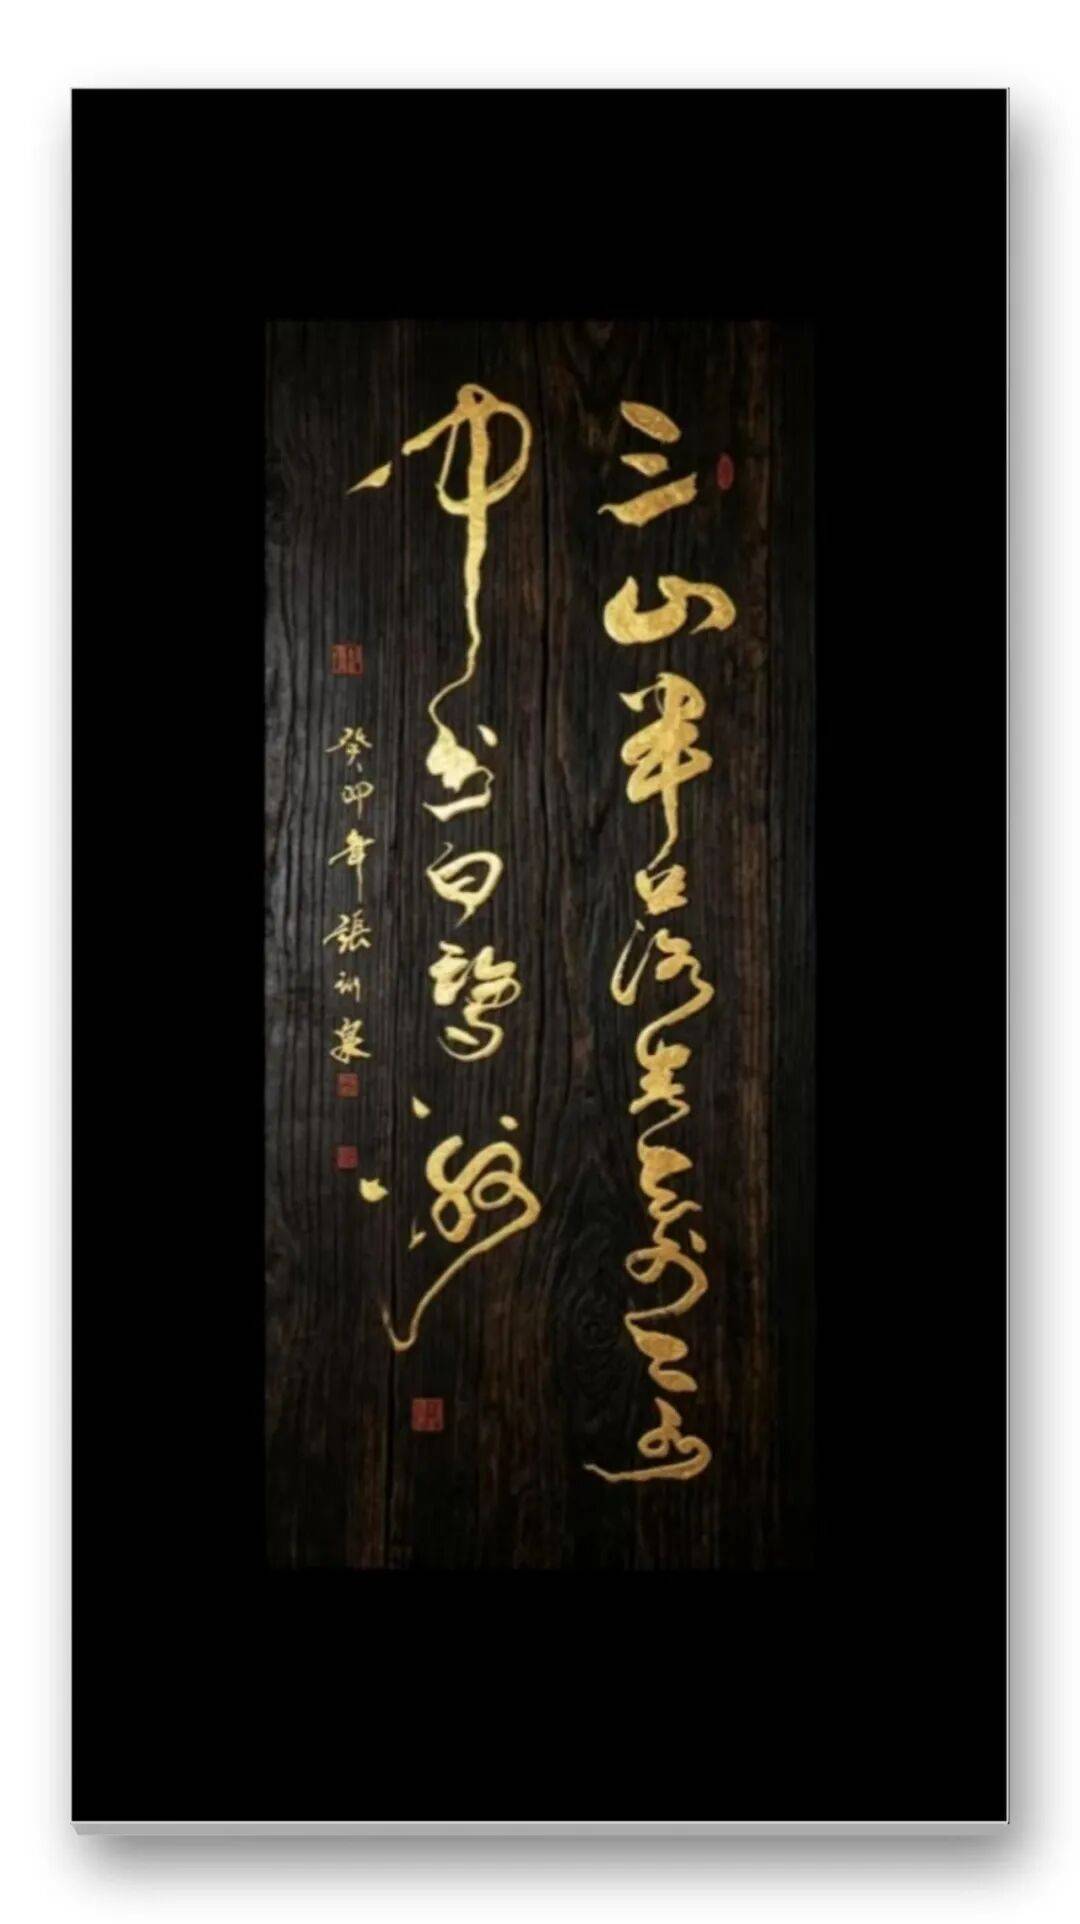 三山半落青天外二水
中分白鷺洲
癸卯年張訓